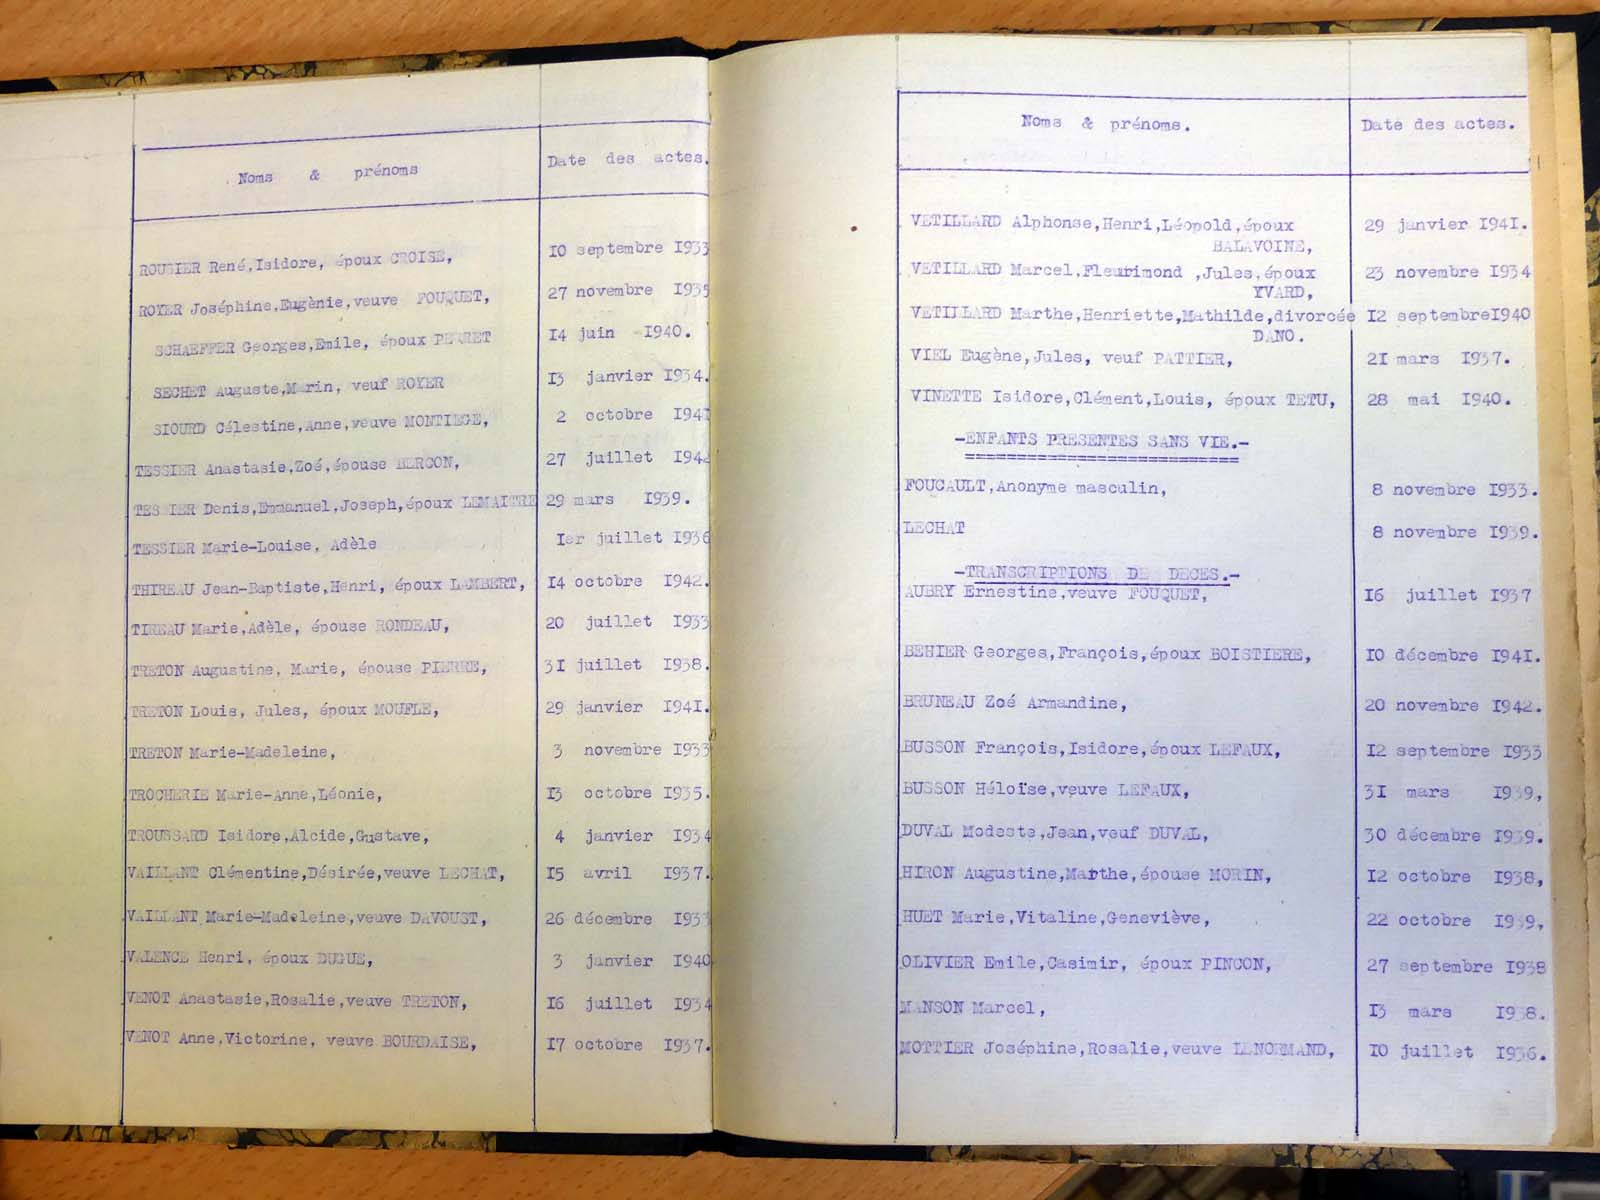 Noms & prénoms Date des actes.
ROUSIER René,Isidore, époux CROISE, 10 septembre 1933
ROYER Joséphine,Eugènie,veuve FOUQUET, 27 novembre 1935
SCHAEFFER Georges,Emile, époux PERRET 14 juin 1940.
SECHET Auguste,Marin, veuf ROYER 13 janvier 1934.
SIOURD Célestine,Anne,veuve MONTIEGE, 2 octobre 1941
TESSIER Anastasie,Zoé,épouse BERCON, 27 juillet 1942
TESSIER Denis,Emmanuel,Joseph,époux LEMAITRE 29 mars 1939.
TESSIER Marie-Louise, Adèle 1er juillet 1936
THIREAU Jean-Baptiste,Henri, époux LAMBERT, 14 octobre 1942.
TIREAU Marie,Adèle, épouse RONDEAU, 20 juillet 1933
TRETON Augustine, Marie, épouse PIERRE, 31 juillet 1938.
TRETON Louis, Jules, époux MOUFLE, 29 janvier 1941.
TRETON Marie-Madeleine, 3 novembre 1933
TROCHERIE Marie-Anne,Léonie, 13 octobre 1935.
TROUSSARD Isidore,Alcide,Gustave, 4 janvier 1934
VAILLANT Clémentine,Désirée,veuve LECHAT, 15 avril 1937.
VAILLANT Marie-Madeleine,veuve DAVOUST, 26 décembre
VALENCE Henri, époux DUGUE, 3 janvier 1940
VENOT Anastasie,Rosalie,veuve TRETON, 16 juillet 1934
VENOT Anne,Victorine, veuve BOURDAISE, 17 octobre 1937.
Noms & prénoms. Date des actes.
VETILLARD Alphonse,Henri,Léopold,époux 29 janvier 1941.
BALAVOINE,
VETILLARD Marcel,Fleurimond ,Jules,époux 23 novembre 1934
YVARD,
VETILLARD Marthe,Henriette,Mathilde,divorcée 12 septembre1940
DANO.
VIEL Eugène,Jules, veuf PATTIER, 21 mars 1937.
VINETTE Isidore,Clément,Louis, époux TETU, 28 mai 1940.
-ENFANTS PRESENTES SANS VIE.-
FOUCAULT,Anonyme masculin, 8 novembre 1933.
LECHAT 8 novembre 1939.
-TRANSCRIPTIONS DE DECES.-
AUBRY Ernestine,veuve FOUQUET, 16 juillet 1937
BEHIER Georges,François,époux BOISTIERE, 10 décembre 1941.
BRUNEAU Zoé Armandine, 20 novembre 1942.
BUSSON François,Isidore,époux LEFAUX, 12 septembre 1933
BUSSON Héloïse,veuve LEFAUX, 31 mars 1939,
DUVAL Modeste,Jean,veuf DUVAL, 30 décembre 1939.
HIRON Augustine,Marthe,épouse MORIN, 12 octobre 1938,
HUET Marie,Vitaline,Geneviève, 22 octobre 1939,
OLIVIER Emile,Casimir, époux PINCON, 27 septembre 1938
MANSON Marcel, 13 mars 1938.
MOTTIER Joséphine,Rosalie,veuve LENORMAND, 10 juillet 1936.